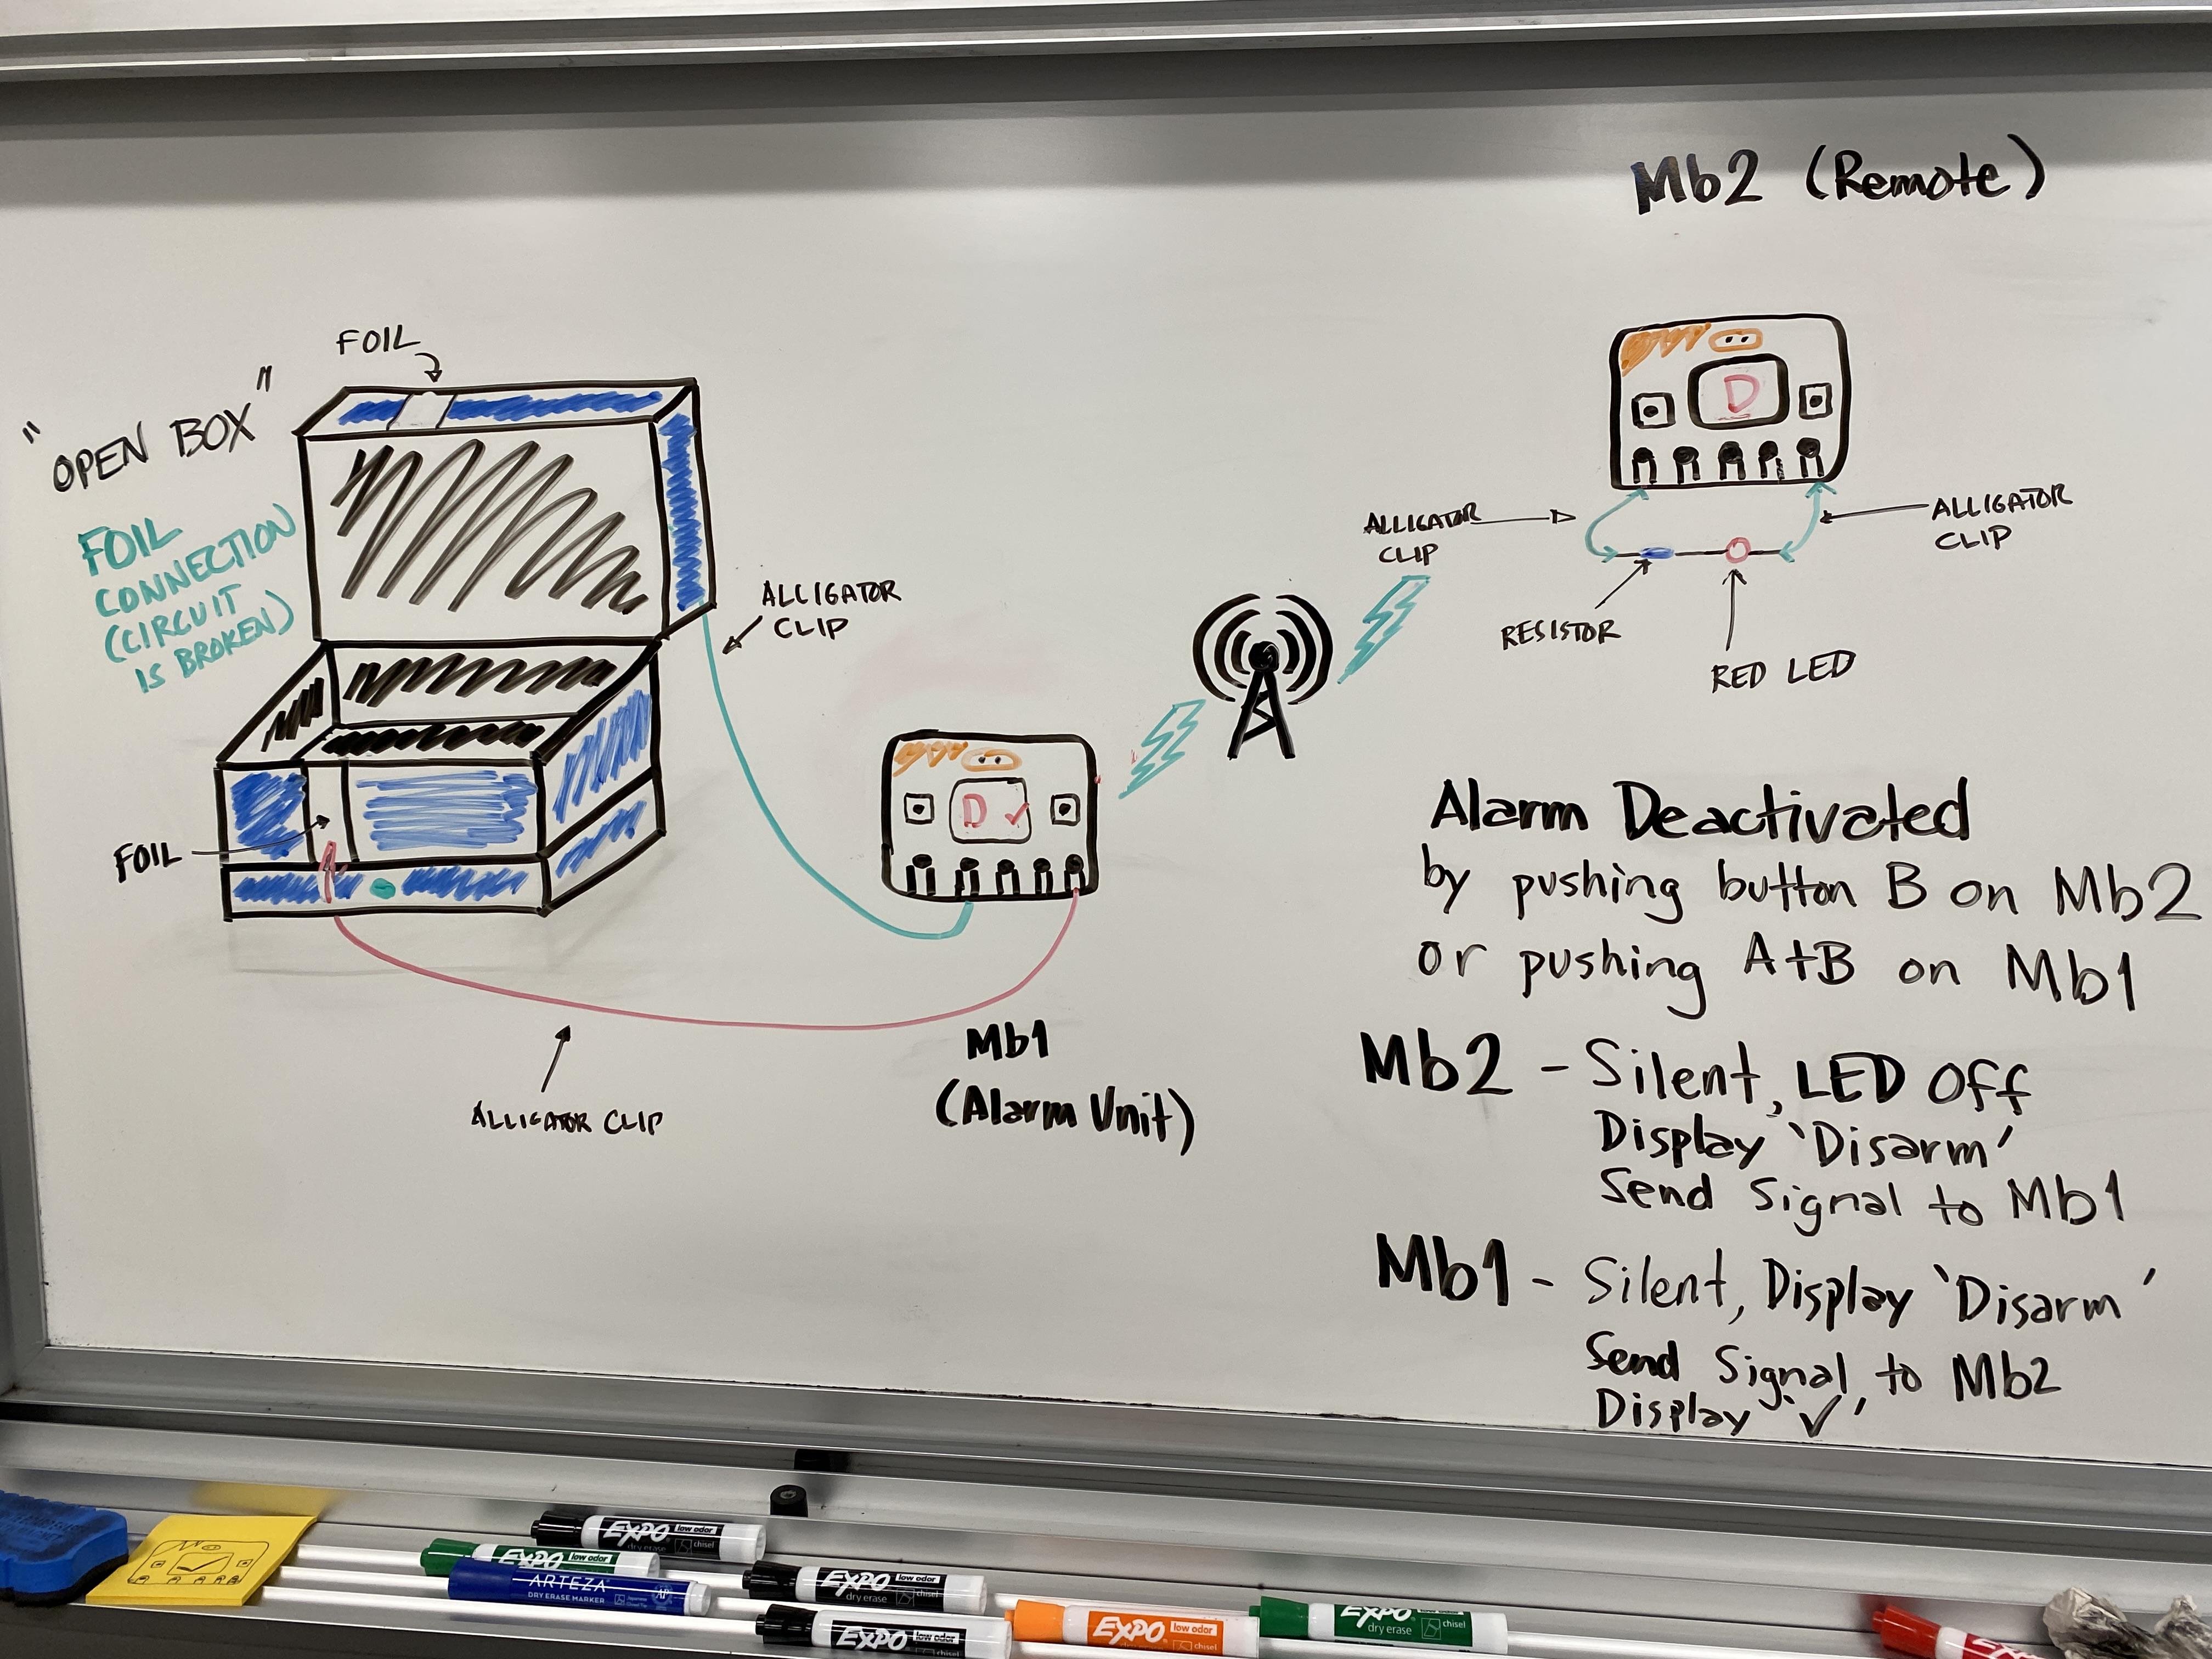 Mb2 (Remote)
FOIL
"OPEN BOX"
FOIL
CONNECTION
(CIRCUIT
IS BROKEN)
D
ALLIGATOR
CLIP
ALLIGATOR
CLIP
RESISTOR
RED LED
ALLIGATOR
CLIP
D ✓
FOIL
ALLIGATOR CLIP
Mb1
(Alarm Unit)
Alarm Deactivated
by pushing button B on Mb2
or pushing A+B on Mb1
Mb2 - Silent, LED Off
Display 'Disarm'
Send Signal to Mb1
Mb1 - Silent, Display 'Disarm'
Send Signal to Mb2
Display '✓'
EXPO low odor
dry erase chisel
EXPO low odor
ARTEZA
DRY ERASE MARKER
EXPO low odor
dry erase chisel
EXPO low odor
chisel
EXPO low odor
dry erase chisel
EXPO low odor
dry erase chisel